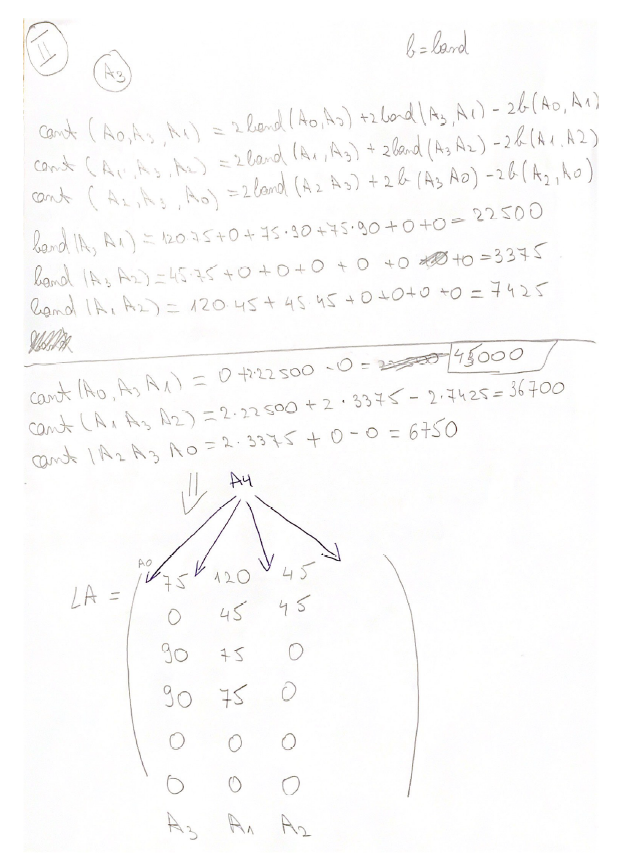 II
b=band
A3
cont (A0,A3,A1) = 2band(A0,A3)+2bond(A3,A1)-2b(A0,A1)
cont (A1,A3,A2) = 2band(A1,A3)+2band(A3A2)-2b(A1A2)
cont (A2,A3,A0) = 2band(A2A3)+2b(A3A0)-2b(A2,A0)
band(A3A1)=120.75+0+75.90+75.90+0+0=22500
band(A3A2)=45.75+0+0+0+0+0+0=3375
band(A1A2)=120.45+45.45+0+0+0+0=7425
cont(A0,A3A1)=0+2.22500-0= 45000
cont(A1A3A2)=2.22500+2.3375-2.7425=36700
cont(A2A3A0=2.3375+0-0=6750
A4
A0
75 120 45
LA =
0 45 45
90 75 0
90 75 0
0 0 0
0 0 0
A3 A1 A2